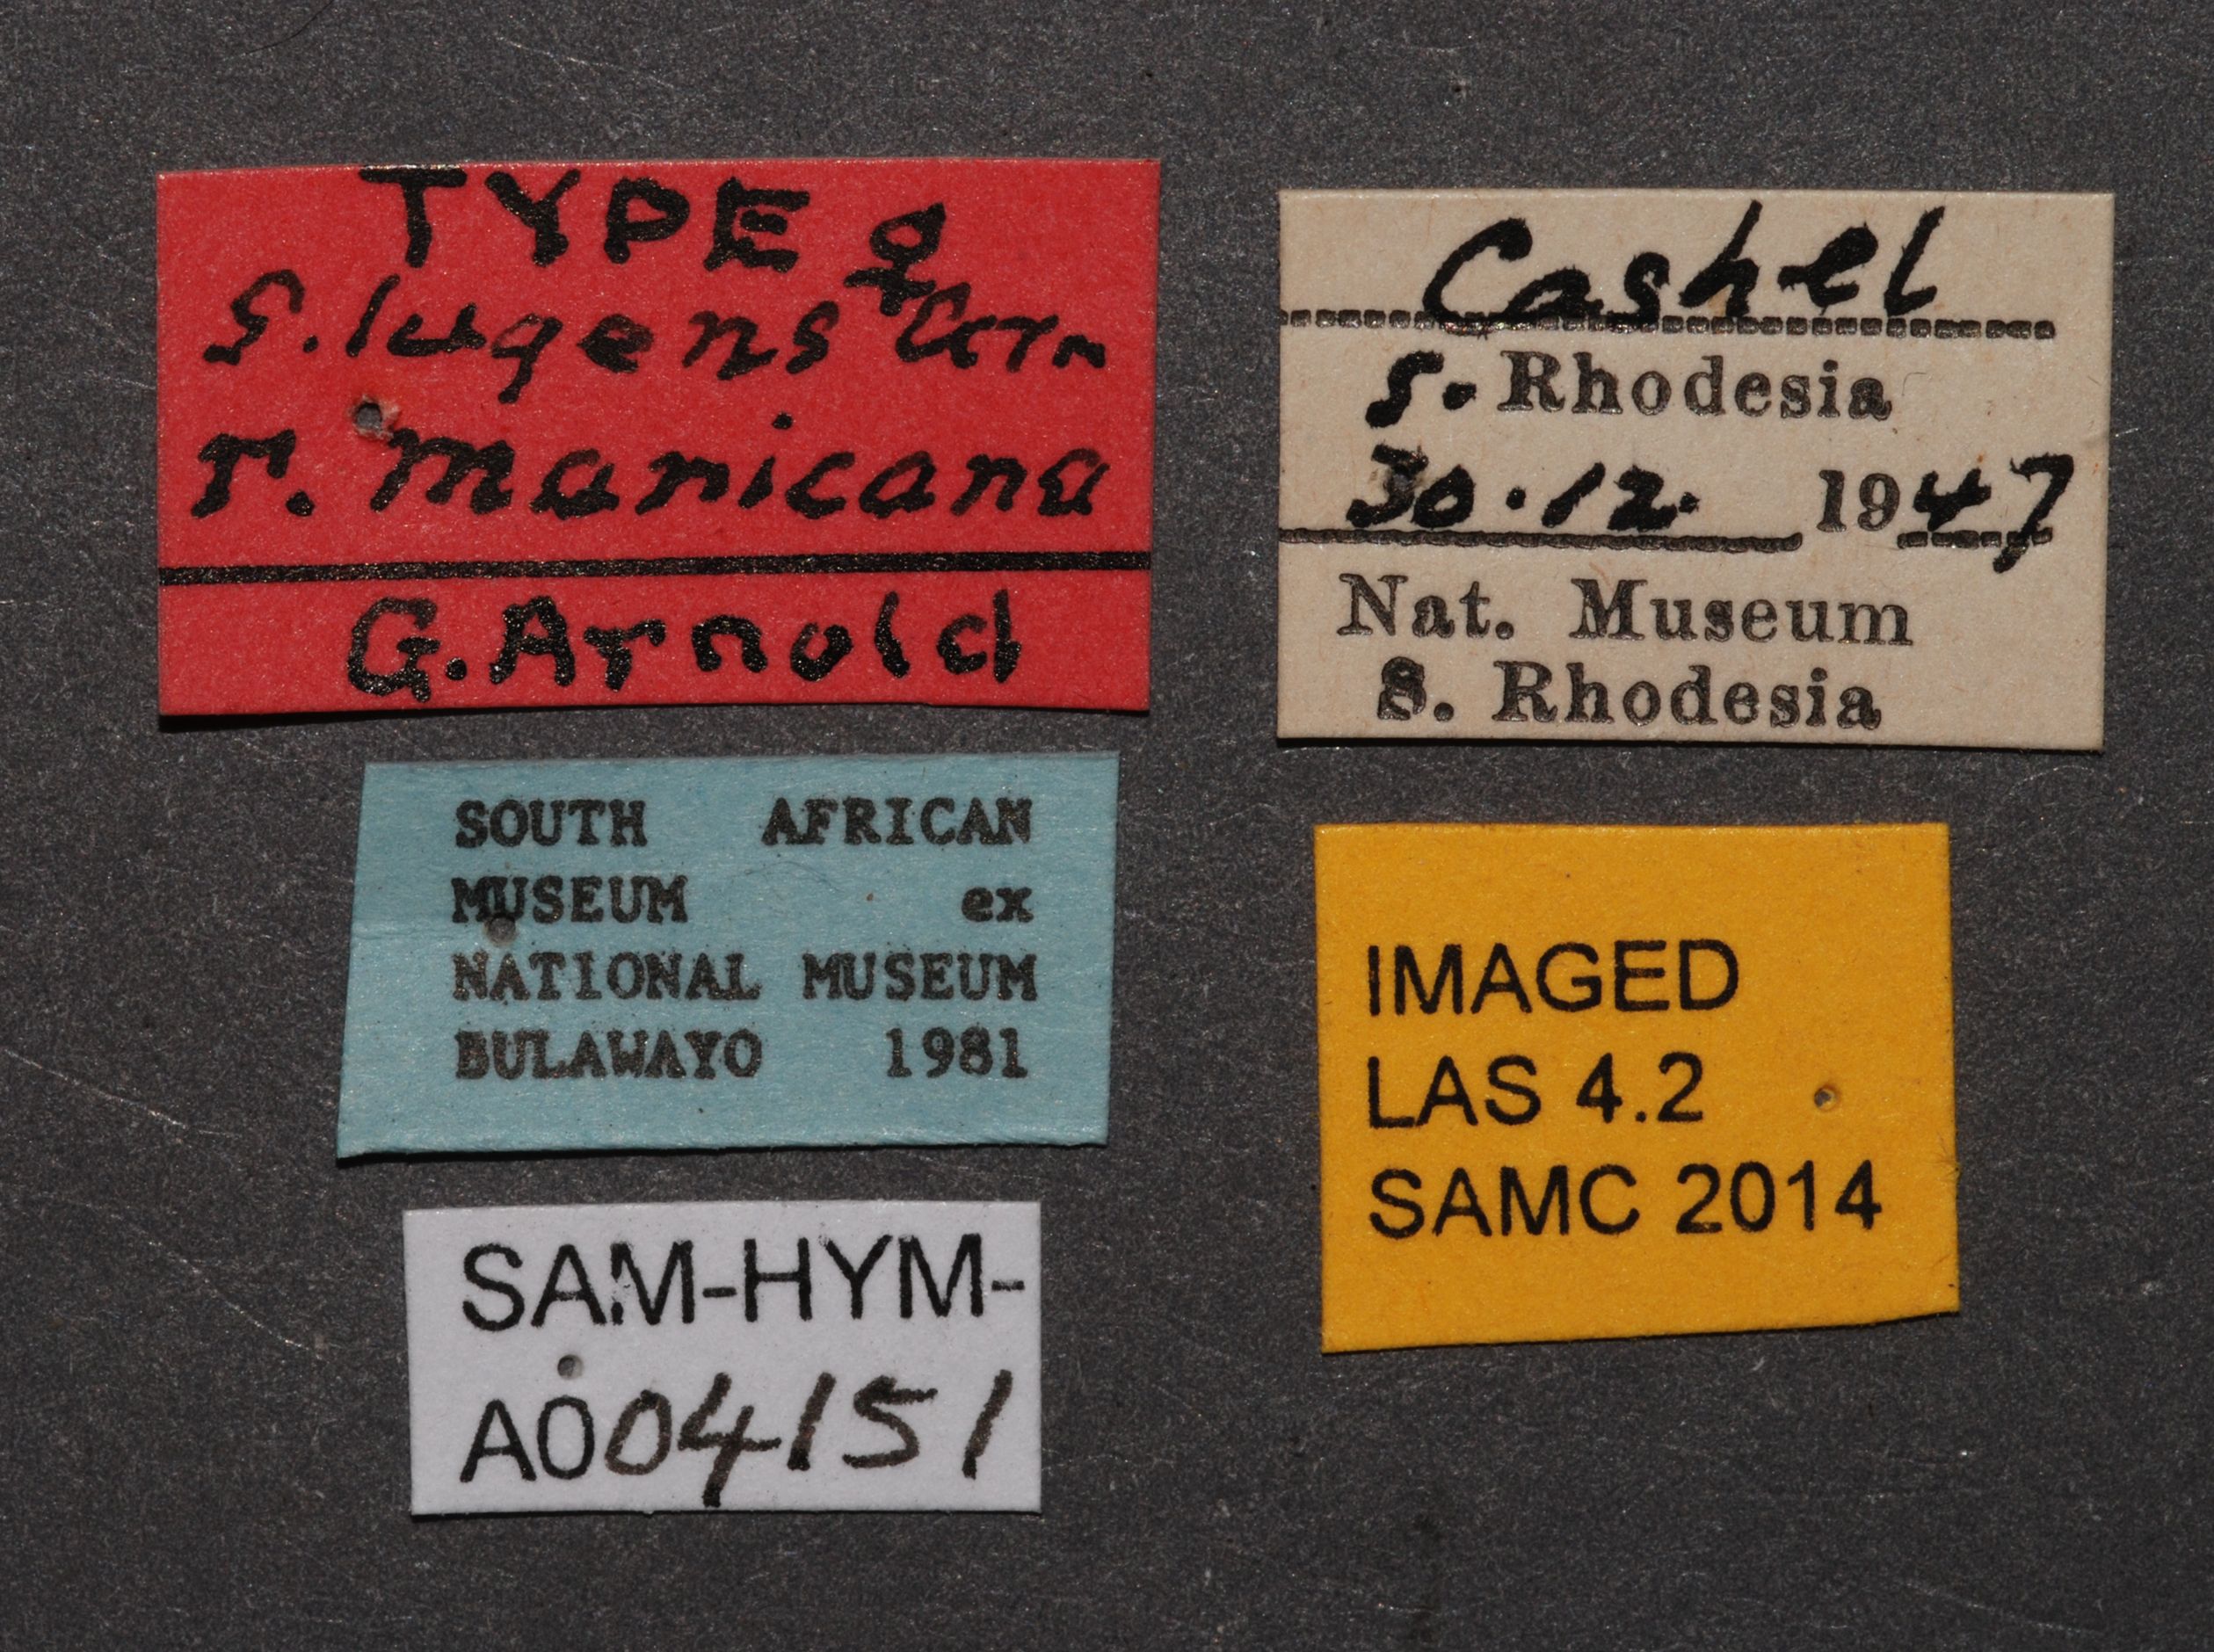 TYPE ♀
S. lugens Grn
r. manicana
G. Arnold
Cashel
S. Rhodesia
30.12. 1947
Nat. Museum
S. Rhodesia
SOUTH AFRICAN
MUSEUM ex
NATIONAL MUSEUM
BULAWAYO 1981
IMAGED
LAS 4.2
SAMC 2014
SAM-HYM-
A004151